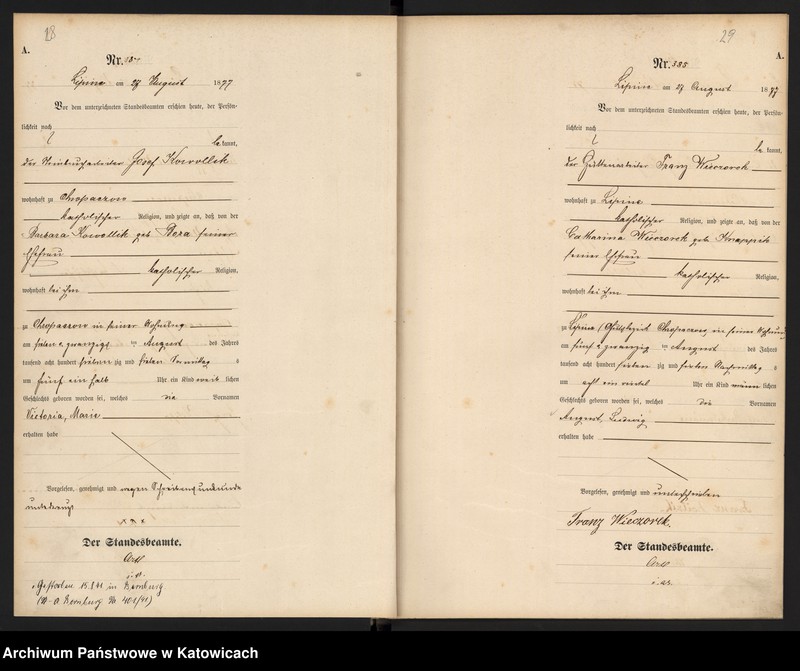 28
A.
Nr.
Lipine am 27 August 1877
Vor dem unterzeichneten Standesbeamten erschien heute, der Persön-
lichkeit nach
be kannt,
der Josef Kowollik
wohnhaft zu Chropaczow
katholischer Religion, und zeigte an, daß von der
Barbara Kowollik geb. Bera seiner
Ehefrau
katholischer Religion,
wohnhaft bei ihm
zu Chropaczow in seiner Wohnung
am sieben & zwanzigs ten August des Jahres
tausend acht hundert sieben zig und sieben Vormittag s
um fünf ein halb Uhr ein Kind weib lichen
Geschlechts geboren worden sei, welches die Vornamen
Victoria, Marie
erhalten habe
Vorgelesen, genehmigt und wegen Schreibensunkunde
unterkreuzt
x x x
Der Standesbeamte.
Gestorben 15.I 41 in Bernburg
(St.A. Bernburg Nr 401/41)
29
A.
Nr. 385
Lipine am 27 August 1877
Vor dem unterzeichneten Standesbeamten erschien heute, der Persön-
lichkeit nach
be kannt,
der Hüttenarbeiter Franz Wieczorek
wohnhaft zu Lipine
katholischer Religion, und zeigte an, daß von der
Catharina Wieczorek geb. Knappik
seiner Ehefrau
katholischer Religion,
wohnhaft bei ihm
zu Lipine (Gutsbezirk Chropaczow, in seiner Wohnung
am fünf & zwanzig ten August des Jahres
tausend acht hundert sieben zig und sieben Nachmittag s
um acht ein viertel Uhr ein Kind männ lichen
Geschlechts geboren worden sei, welches die Vornamen
August, Ludwig
erhalten habe
Vorgelesen, genehmigt und unterschrieben
Franz Wieczorek.
Der Standesbeamte.
Archiwum Państwowe w Katowicach